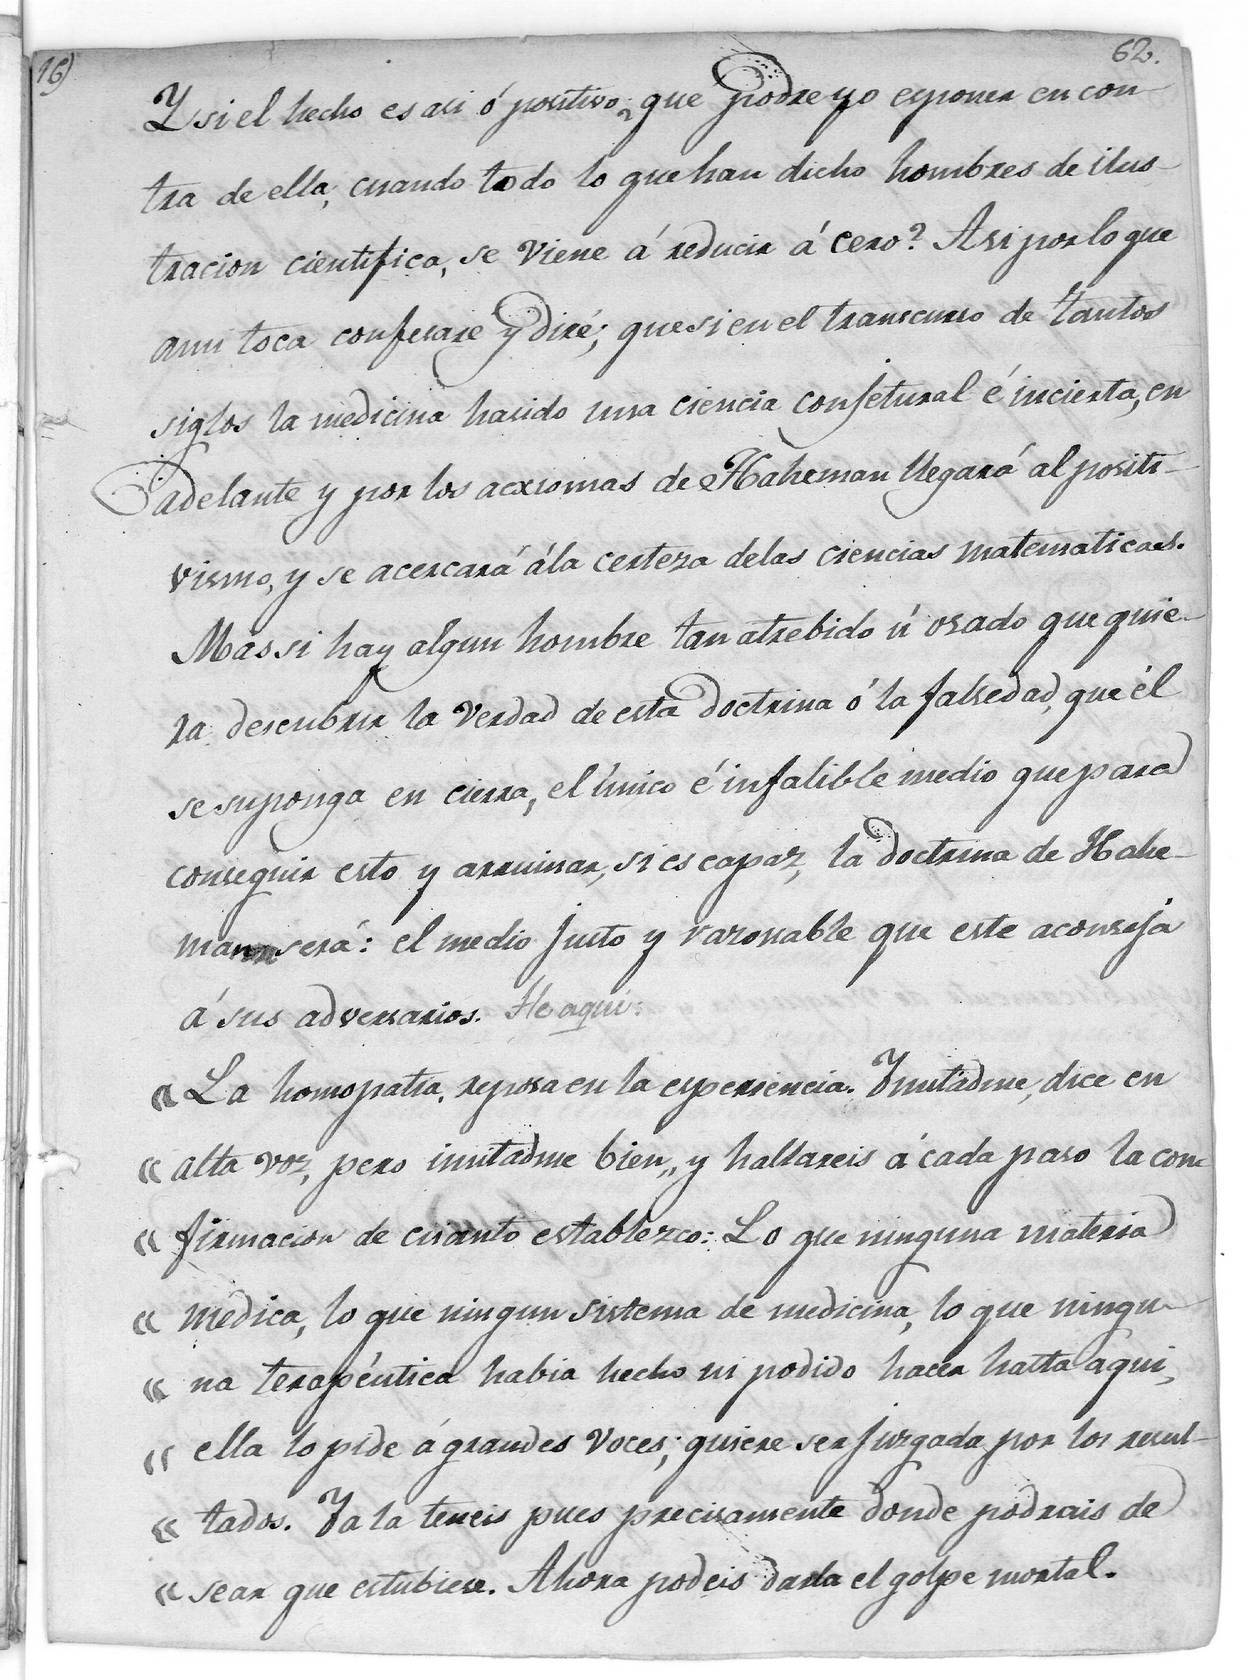 16)
62.
Y si el hecho es asi ó positivo, que podre yo esponer en con-
tra de ella, cuando todo lo que han dicho hombres de ilus-
tracion cientifica, se viene á reducir á cero? Asi por lo que
ami toca confesare y diré; que si en el transcurso de tantos
siglos la medicina ha sido una ciencia conjetural é incierta, en
adelante y por los acxiomas de Haheman llegará al positi-
vismo, y se acercará á la certeza de las ciencias matematicas.
Mas si hay algun hombre tan atrebido ú osado que quie-
ra descubrir la verdad de esta doctrina ó la falsedad, que él
se suponga en cierra, el único é infalible medio que para
conseguir esto y arruinar, si es capaz, la doctrina de Hahe-
man será: el medio justo y razonable que este aconseja
á sus adversarios. He aqui:
« La homopatia, reposa en la esperiencia. Imitadme, dice en
« alta voz, pero imitadme bien, y hallareis á cada paso la con-
« firmacion de cuanto establezco: Lo que ninguna materia
« médica, lo que ningun sistema de medicina, lo que ningu-
« na terapéutica habia hecho ni podido hacer hasta aqui,
« ella lo pide á grandes voces; quiere ser juzgada por los resul-
« tados. Ya la teneis pues precisamente donde podrais de
« sear que estubiese. Ahora podeis darla el golpe mortal.